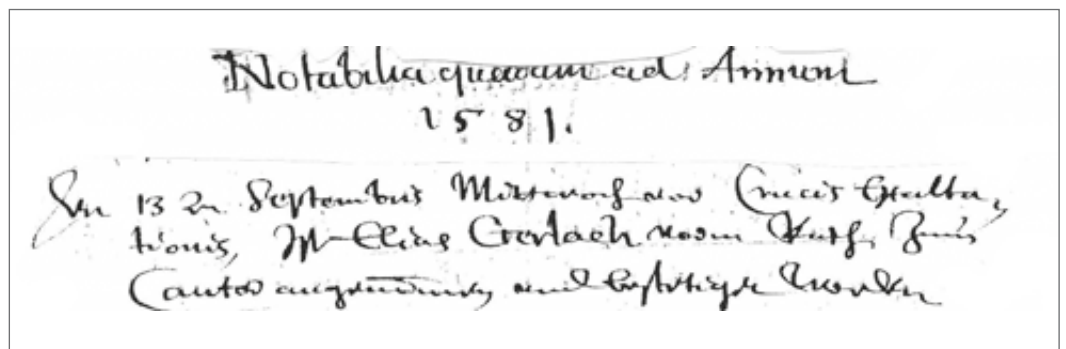 Notabilia quaedam ad Annum
1581.
Den 13 Septembris Mittwoch vor Crucis Exalta,
tionis, Elias Gerlach vom Rath, Zum
Cantor angenommen und bestetiget worden